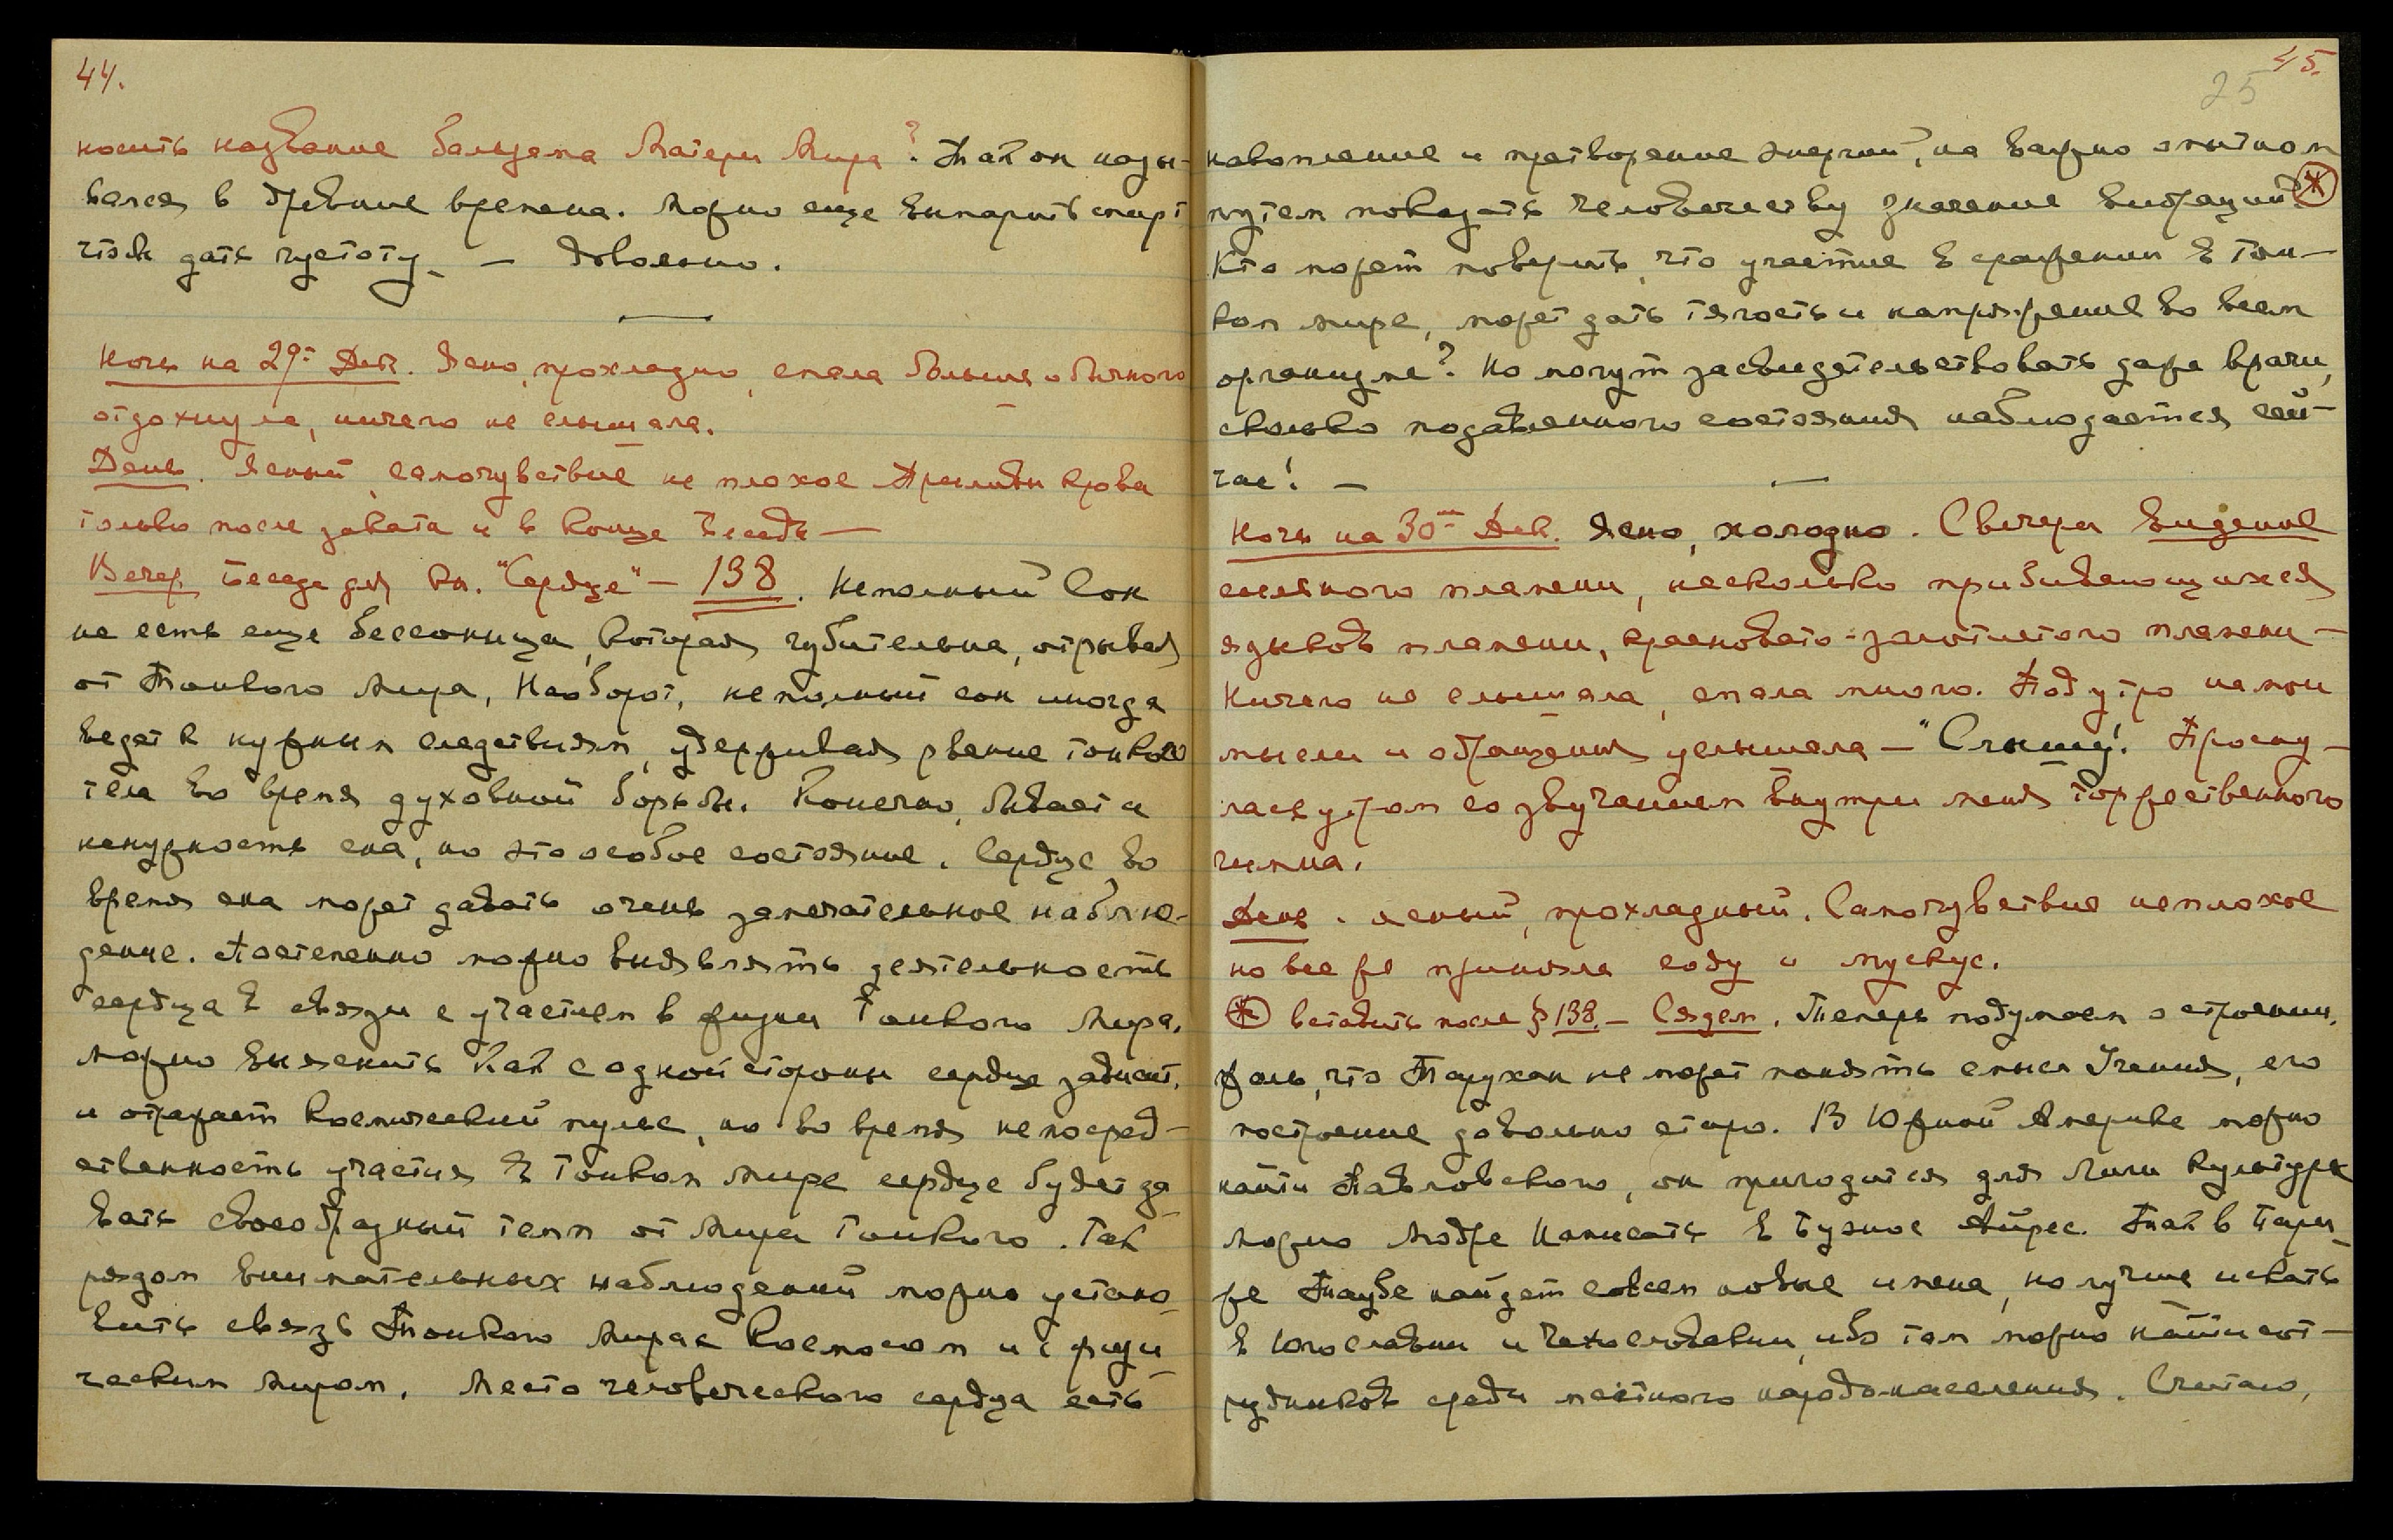 44.
носить название бальзама Матери Мира? Так он назы-
вался в древние времена. Можно еще выпарить спирт
чтоб дать густоту. — Довольно.
Ночь на 29ое Дек. Ясно, прохладно, спала больше обычного
отдохнула, ничего не слышала.
День. Ясный, самочувствие не плохое Приливы крови
только после заката и в конце Беседы —
Вечер Беседа для кн. "Сердце" — 138. Неполный Сон
не есть еще бессонница, которая губительна, отрывая
от Тонкого Мира, Наоборот, неполный сон иногда
ведет к нужным следствиям, удерживая рвение тонкого
тела во время духовной борьбы. Конечно, бывает и
ненужность сна, но это особое состояние. Сердце во
время сна может давать очень замечательное наблю-
дение. Постепенно можно выявлять деятельность
сердца в связи с участием в жизни Тонкого Мира.
Можно выяснить как с одной стороны сердце зависит,
и отражает космический пульс, но во время непосред-
ственность участия в Тонком Мире сердце будет да-
вать своеобразный темп от Мира Тонкого. Так
рядом внимательных наблюдений можно устано-
вить связь Тонкого Мира с Космосом и с физи-
ческим Миром. Место человеческого сердца есть
45.
25
накопление и претворение энергий, на важно опытном
путем показать человечеству значение вибраций. *
Кто может поверить, что участие в сражении в Тон-
ком мире, может дать тягость и напряжение во всем
организме? Но могут засвидетельствовать даже врачи,
сколько подавленного состояния наблюдается сей-
час! —
Ночь на 30ое Дек. Ясно, холодно. С вечера видение
слитного пламени, несколько пробивающихся
языков пламени, красновато-золотистого пламени —
Ничего не слышала, спала много. Под утро на мои
мысли и обращения услышала — "Слышу! Просну-
лась утром со звучанием внутри меня торжественного
гимна.
День. ясный, прохладный. Самочувствие неплохое
но все же приняла соду и мускус.
* вставить после § 138. — Сядем. Теперь подумаем о строении.
Жаль, что Тарухан не может понять смысл Учения, его
построение довольно старо. В Южной Америке можно
найти Павловского, он пригодится для Лиги Культуры
можно Модре Написать в Буэнос Айрес. Так в Пари-
же Таубе найдет совсем новые имена, но лучше искать
в Югославии и Чехословакии, ибо там можно найти сот-
рудников среди местного народонаселения. Считаю,